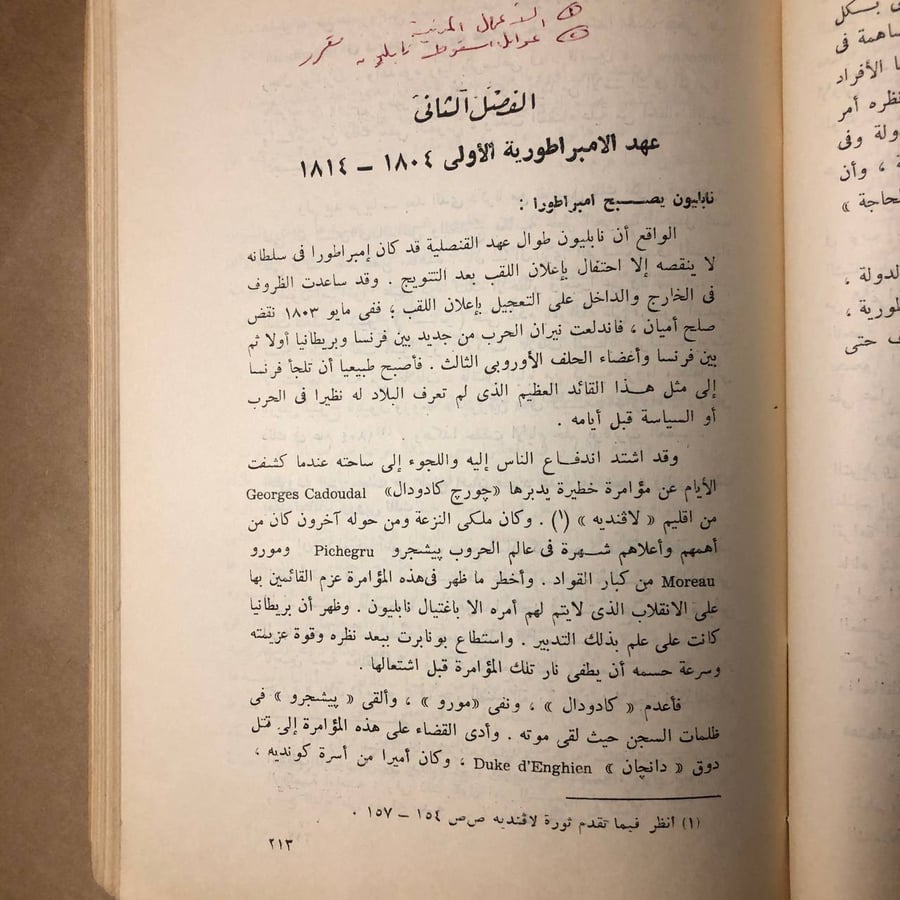 ① الأعمال المدنية
② عوامل سقوط نابليون مقرر
الفصل الثانى
عهد الامبراطورية الأولى ١٨٠٤ – ١٨١٤
نابليون يصبح امبراطورا :
الواقع أن نابليون طوال عهد القنصلية قد كان إمبراطورا فى سلطانه
لا ينقصه إلا احتفال بإعلان اللقب بعد التتويج . وقد ساعدت الظروف
فى الخارج والداخل على التعجيل بإعلان اللقب ؛ ففى مايو ١٨٠٣ نقض
صلح أميان ، فاندلعت نيران الحرب من جديد بين فرنسا وبريطانيا أولا ثم
بين فرنسا وأعضاء الحلف الأوروبى الثالث . فأصبح طبيعيا أن تلجأ فرنسا
إلى مثل هذا القائد العظيم الذى لم تعرف البلاد له نظيرا فى الحرب
أو السياسة قبل أيامه .
وقد اشتد اندفاع الناس إليه واللجوء إلى ساحته عندما كشفت
الأيام عن مؤامرة خطيرة يدبرها «چورچ كادودال» Georges Cadoudal
من اقليم « لاڤنديه » (١) . وكان ملكى النزعة ومن حوله آخرون كان من
أهمهم وأعلاهم شهرة فى عالم الحروب پيشجرو Pichegru ومورو
Moreau من كبار القواد . وأخطر ما ظهر فى هذه المؤامرة عزم القائمين بها
على الانقلاب الذى لايتم لهم أمره الا باغتيال نابليون . وظهر أن بريطانيا
كانت على علم بذلك التدبير . واستطاع بونابرت ببعد نظره وقوة عزيمته
وسرعة حسمه أن يطفى نار تلك المؤامرة قبل اشتعالها .
فأعدم « كادودال » ، ونفى «مورو » ، وألقى « پيشجرو » فى
ظلمات السجن حيث لقى موته . وأدى القضاء على هذه المؤامرة إلى قتل
دوق « دانچان » Duke d'Enghien ، وكان أميرا من أسرة كونديه ،
(١) انظر فيما تقدم ثورة لاڤنديه ص ص ١٥٤ – ١٥٧ .
٢١٣
ساهمة فى
الأفراد
نظره أمر
وفى
، وأن
»
الدولة ،
،
حتى